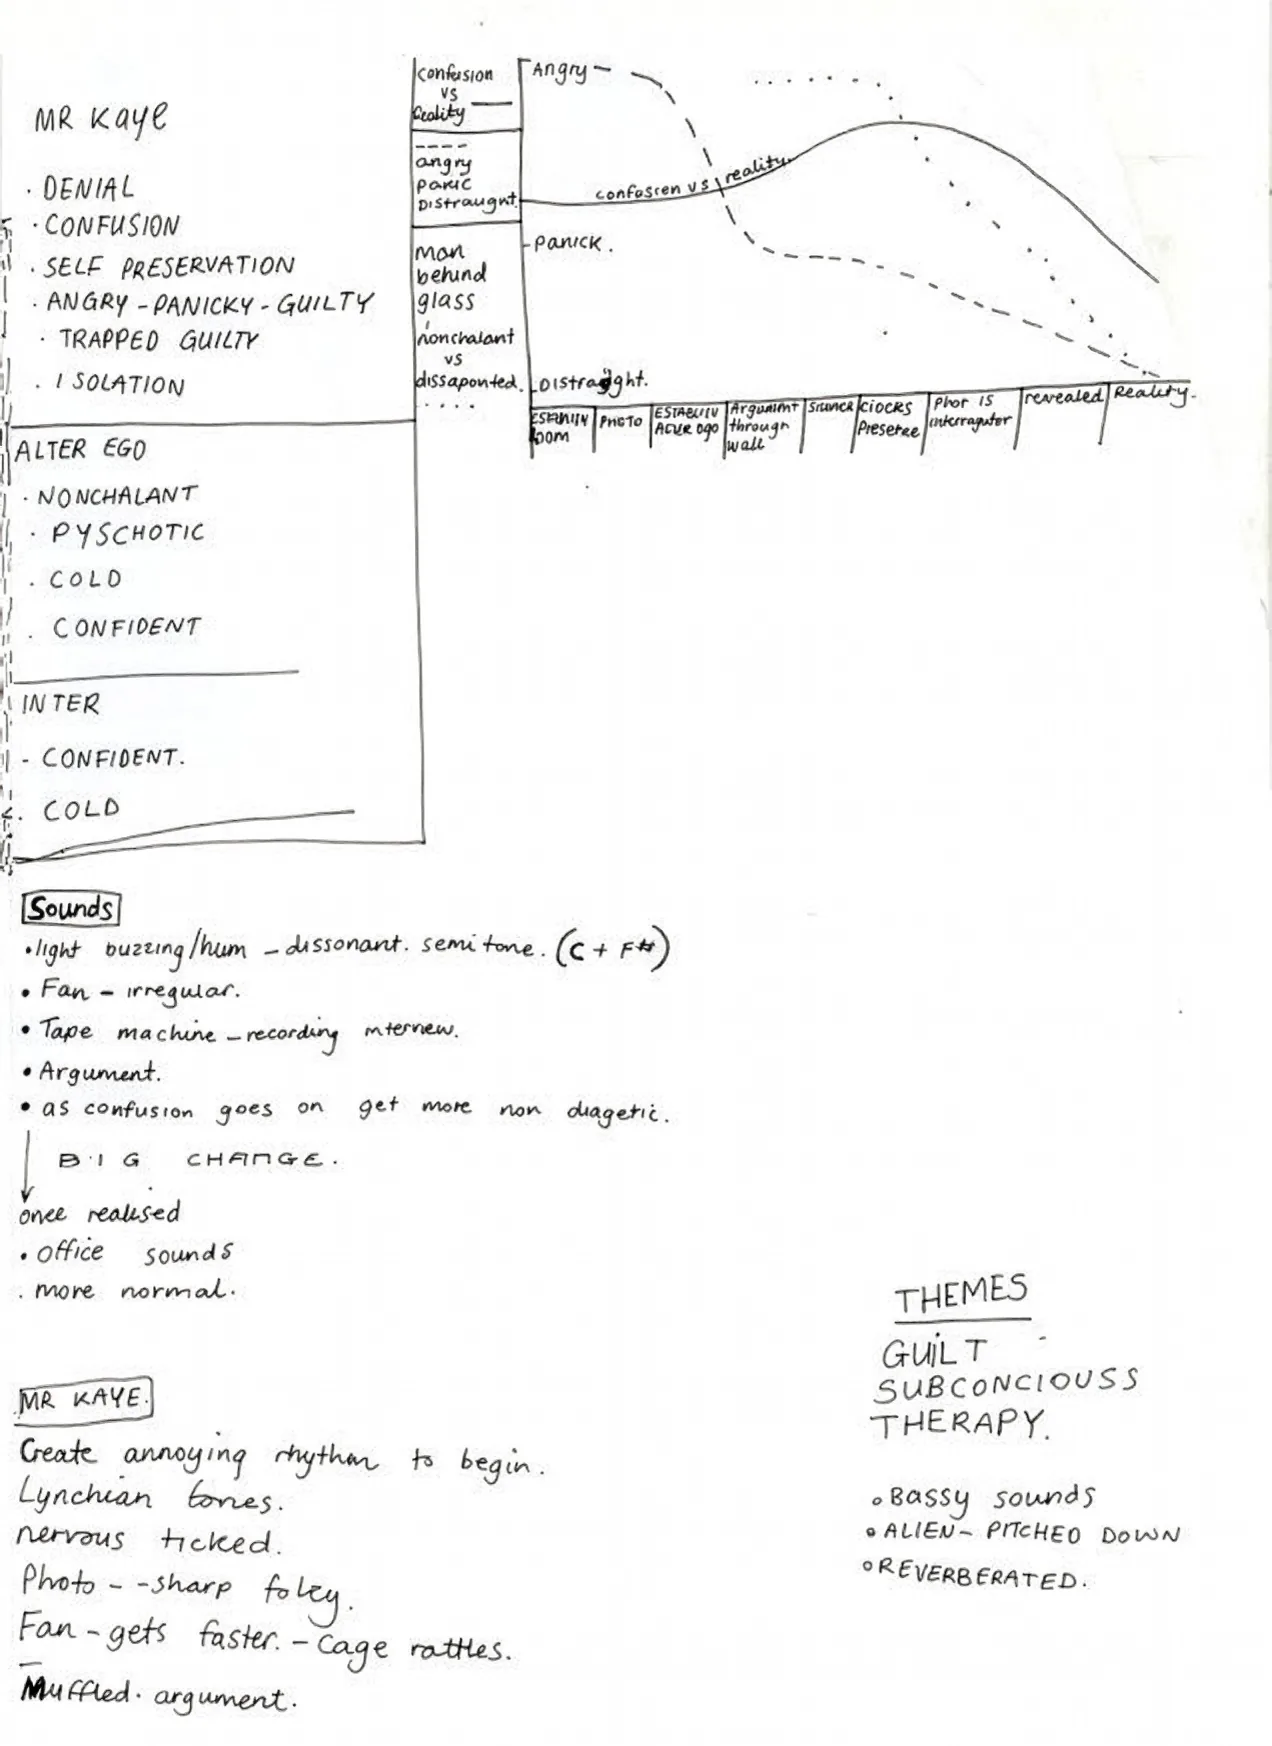 MR Kaye
· DENIAL
· CONFUSION
· SELF PRESERVATION
· ANGRY - PANICKY - GUILTY
· TRAPPED GUILTY
· ISOLATION
ALTER EGO
· NONCHALANT
· PYSCHOTIC
· COLD
· CONFIDENT
INTER
- CONFIDENT.
· COLD
confusion
vs
Reality —
----
angry
panic
Distraught.
man
behind
glass
nonchalant
vs
dissaponted.
....
Angry —
confusion vs reality
- Panick.
- Distraught.
Room
PHOTO
Argument
through
wall
clocks
Interrogator
revealed
Reality.
Sounds
• light buzzing/hum - dissonant. semitone. (C + F#)
• Fan - irregular.
• Tape machine - recording interview.
• Argument.
• as confusion goes on get more non diagetic.
BIG CHANGE.
once realised
• office sounds
· more normal.
MR KAYE.
Create annoying rhythm to begin.
Lynchian tones.
nervous ticked.
Photo - - sharp foley.
Fan - gets faster. - Cage rattles.
Muffled. argument.
THEMES
GUILT
SUBCONCIOUSS
THERAPY.
• Bassy sounds
• ALIEN - PITCHED DOWN
• REVERBERATED.